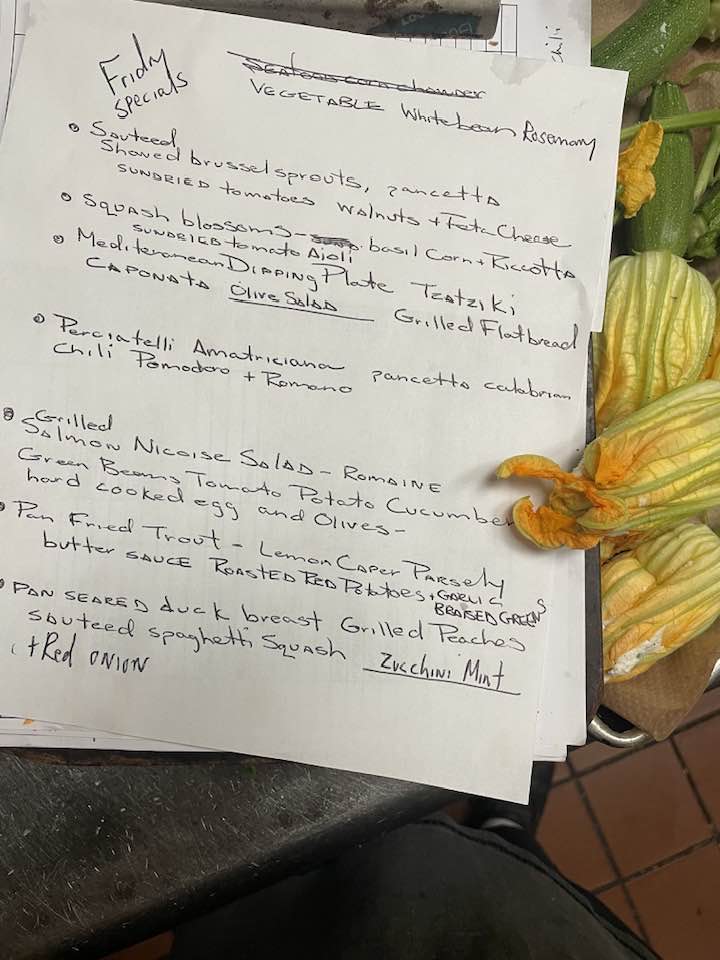 Friday
Specials
VEGETABLE Whitebean Rosemary
• Sauteed
Shaved brussel sprouts, pancetta
SUNDRIED tomatoes walnuts + Feta Cheese
• Squash blossoms - basil corn + Riccotta
SUNDRIED tomato Aioli
• Mediteranean DIPPING Plate Tzatziki
CAPONATA Olive Salad Grilled Flatbread
• Perciatelli Amatriciana pancetta calabrian
Chili Pomodoro + Romano
• Grilled
Salmon Nicoise Salad - ROMAINE
Green Beans Tomato Potato Cucumber
hard cooked egg and Olives -
• Pan Fried Trout - Lemon Caper Parsely
butter SAUCE ROASTED RED Potatoes + GARLIC
BRAISED GREENS
• PAN SEARED duck breast Grilled Peaches
sauteed spaghetti Squash Zucchini Mint
+ Red ONION